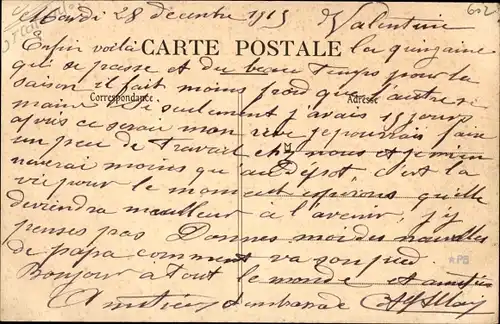 Mardi 28 decembre 1915 Valentine 602
Enfin voilà CARTE POSTALE la quinzaine
qui se passe et du beau Temps pour la
saison il fait moins froid que l'autre se
Correspondance Adresse
maine Si seulement j'avais 15 jours
après ce serai mon rêve je pourrais faire
un peu de Travail chez nous et je m'en
nuierai moins qu'au Dépot, c'est la
vie pour le moment espérons qu'elle
deviendra meilleur à l'avenir, j'y
penses pas Donnes moi des nouvelles
de papa comment va son pied
Bonjour a Tout le monde et amitiés
Amitiés
PB